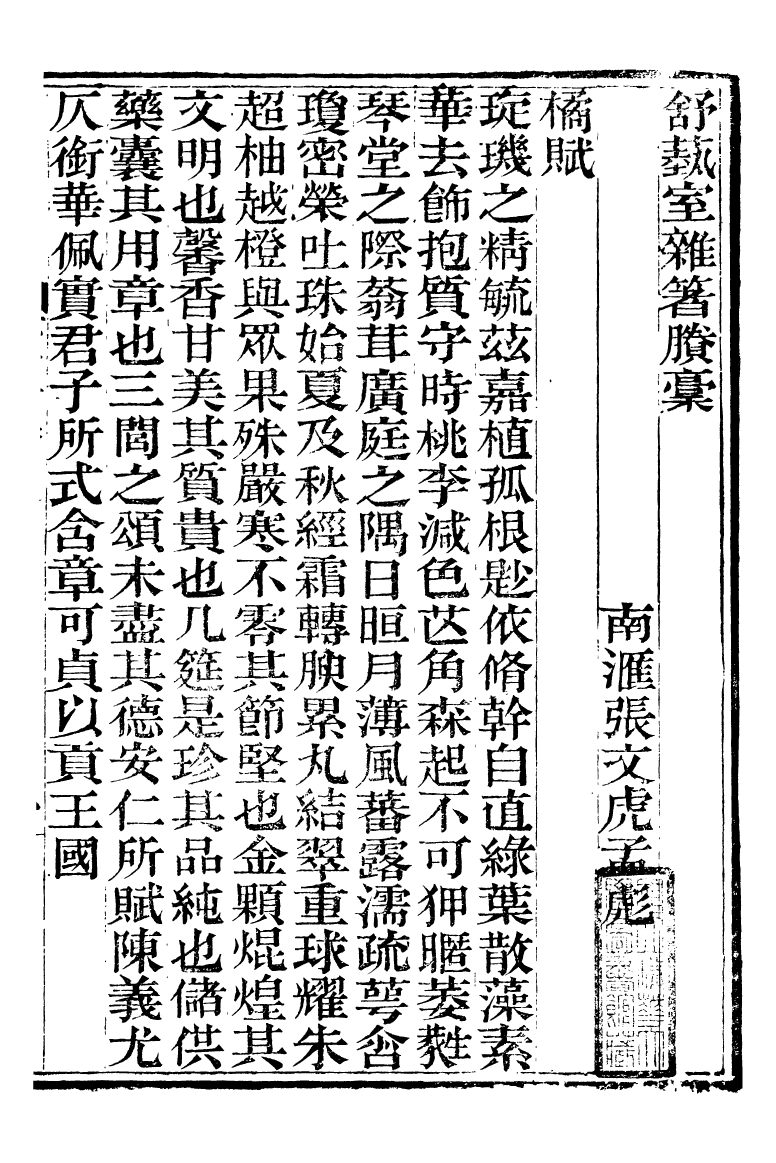 舒埶室雜箸賸稾
南滙張文虎孟彪
橘賦
琁璣之精毓茲嘉植孤根尟依脩幹自直綠葉散藻素
華去飾抱質守時桃李減色芒角森起不可狎暱萎甤
琴堂之際蓊茸廣庭之隅日晅月薄風蕃露濡疏萼含
瓊密榮吐珠始夏及秋經霜轉腴累丸結翠重球耀朱
超柚越橙與眾果殊嚴寒不零其節堅也金顆焜煌其
文明也馨香甘美其質貴也几筵是珍其品純也儲供
藥囊其用章也三閭之頌未盡其德安仁所賦陳義尤
仄銜華佩實君子所式含章可貞以貢王國